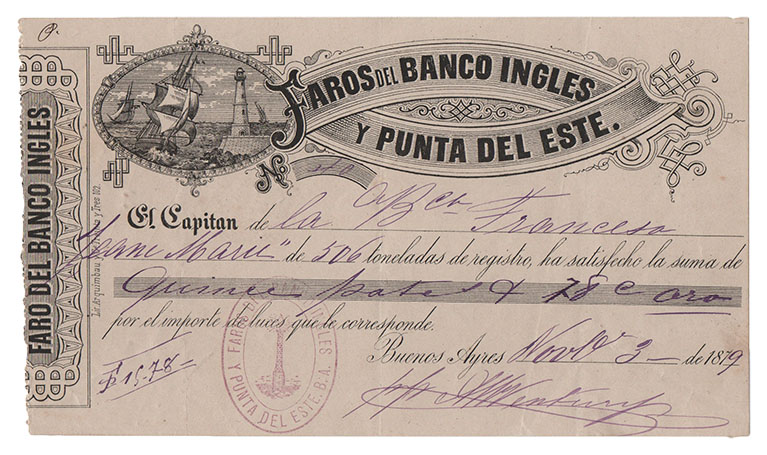 FARO DEL BANCO INGLES
FAROS DEL BANCO INGLES
Y PUNTA DEL ESTE.
Nº
El Capitan de la Bca Francesa
"Jeane Marie" de 506 toneladas de registro, ha satisfecho la suma de
Quince pates & 78 c oro
por el importe de luces que le corresponde.
Buenos Ayres Novbe 3 — de 1879
$ 15-78—
FAROS DEL BANCO INGLES
Y PUNTA DEL ESTE. B.A.